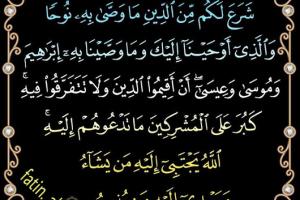 شَرَعَ لَكُم مِّنَ الدِّينِ مَا وَصَّىٰ بِهِۦ نُوحًا
وَالَّذِىٓ أَوْحَيْنَآ إِلَيْكَ وَمَا وَصَّيْنَا بِهِۦٓ إِبْرَٰهِيمَ
وَمُوسَىٰ وَعِيسَىٰٓ أَنْ أَقِيمُوا۟ الدِّينَ وَلَا تَتَفَرَّقُوا۟ فِيهِ ۚ
كَبُرَ عَلَى الْمُشْرِكِينَ مَا تَدْعُوهُمْ إِلَيْهِ ۚ
اللَّهُ يَجْتَبِىٓ إِلَيْهِ مَن يَشَآءُ
fatin